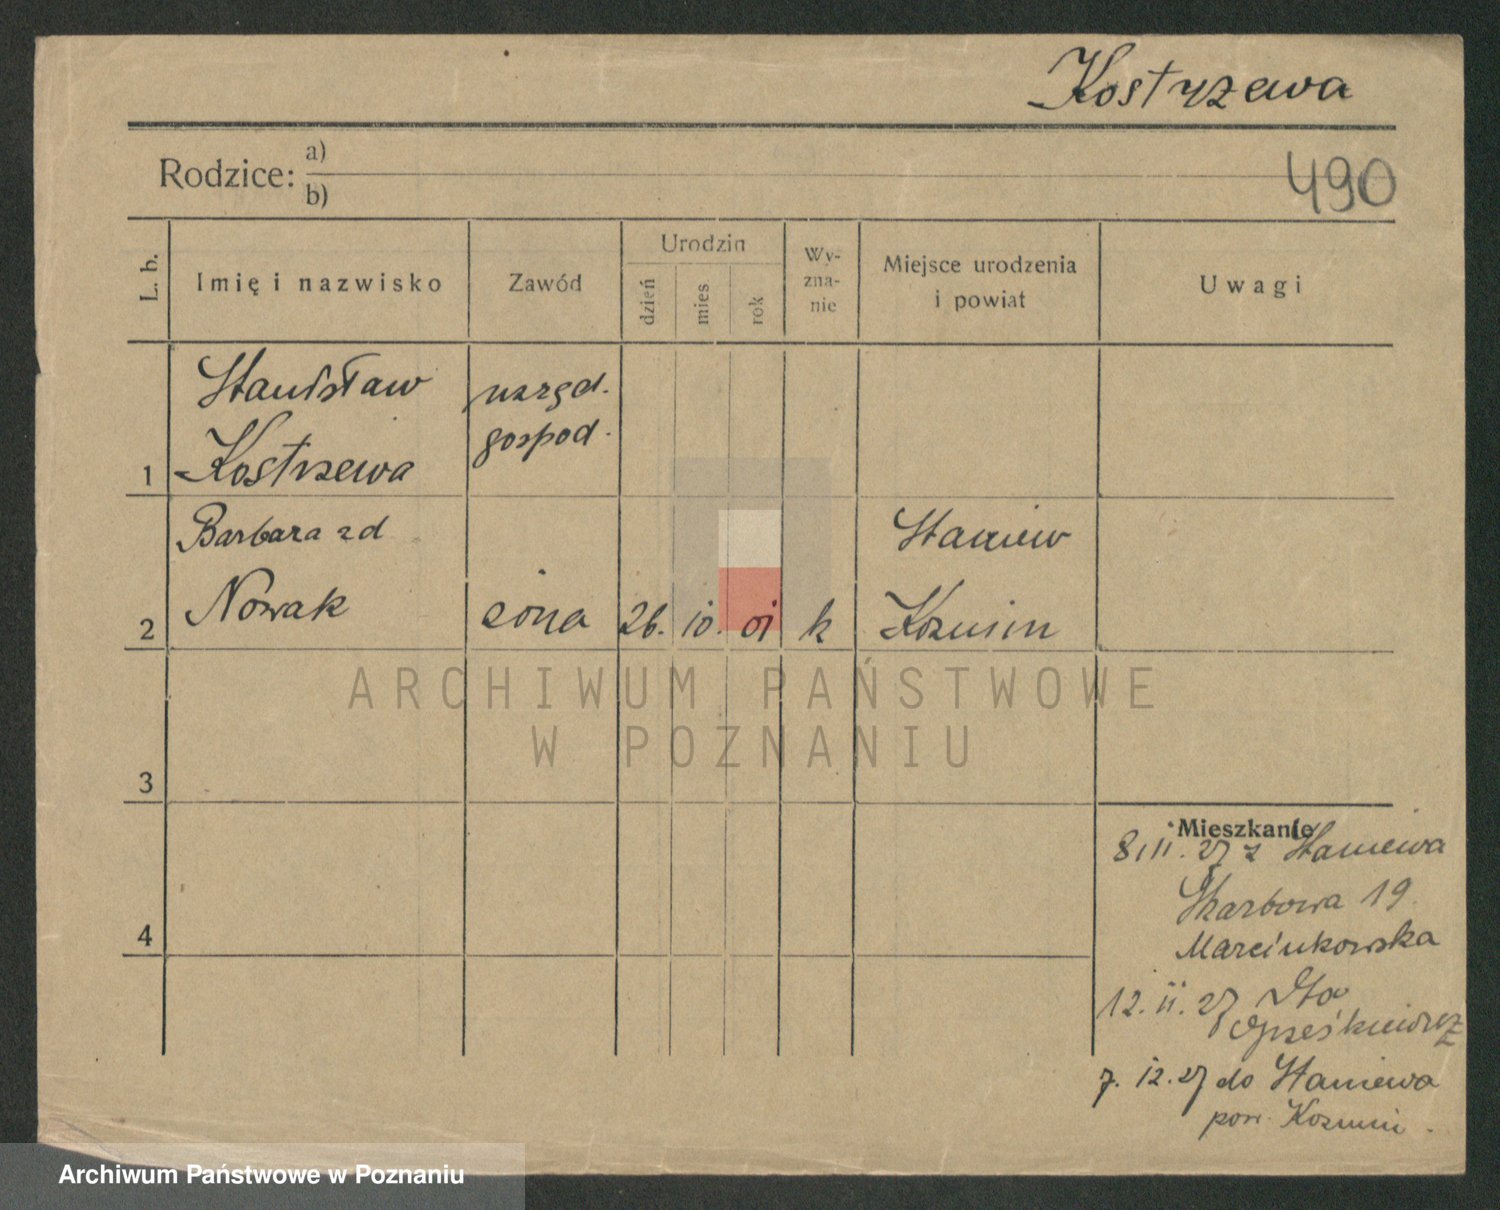 Kostrzewa
Rodzice: a)
b)
490
L. b.
Imię i nazwisko
Zawód
Urodzin
dzień
mies
rok
Wy-
zna-
nie
Miejsce urodzenia
i powiat
Uwagi
1
Stanisław
Kostrzewa
urzęd.
gospod.
2
Barbara zd
Nowak
żona
26. 10. 01
k
Staniew
Koźmin
3
4
Mieszkanie
8.11.27 z Staniewa
Skarbowa 19
Marcinkowska
12.11.27
7.12.27 do Staniewa
pow. Koźmin.
ARCHIWUM PAŃSTWOWE
W POZNANIU
Archiwum Państwowe w Poznaniu